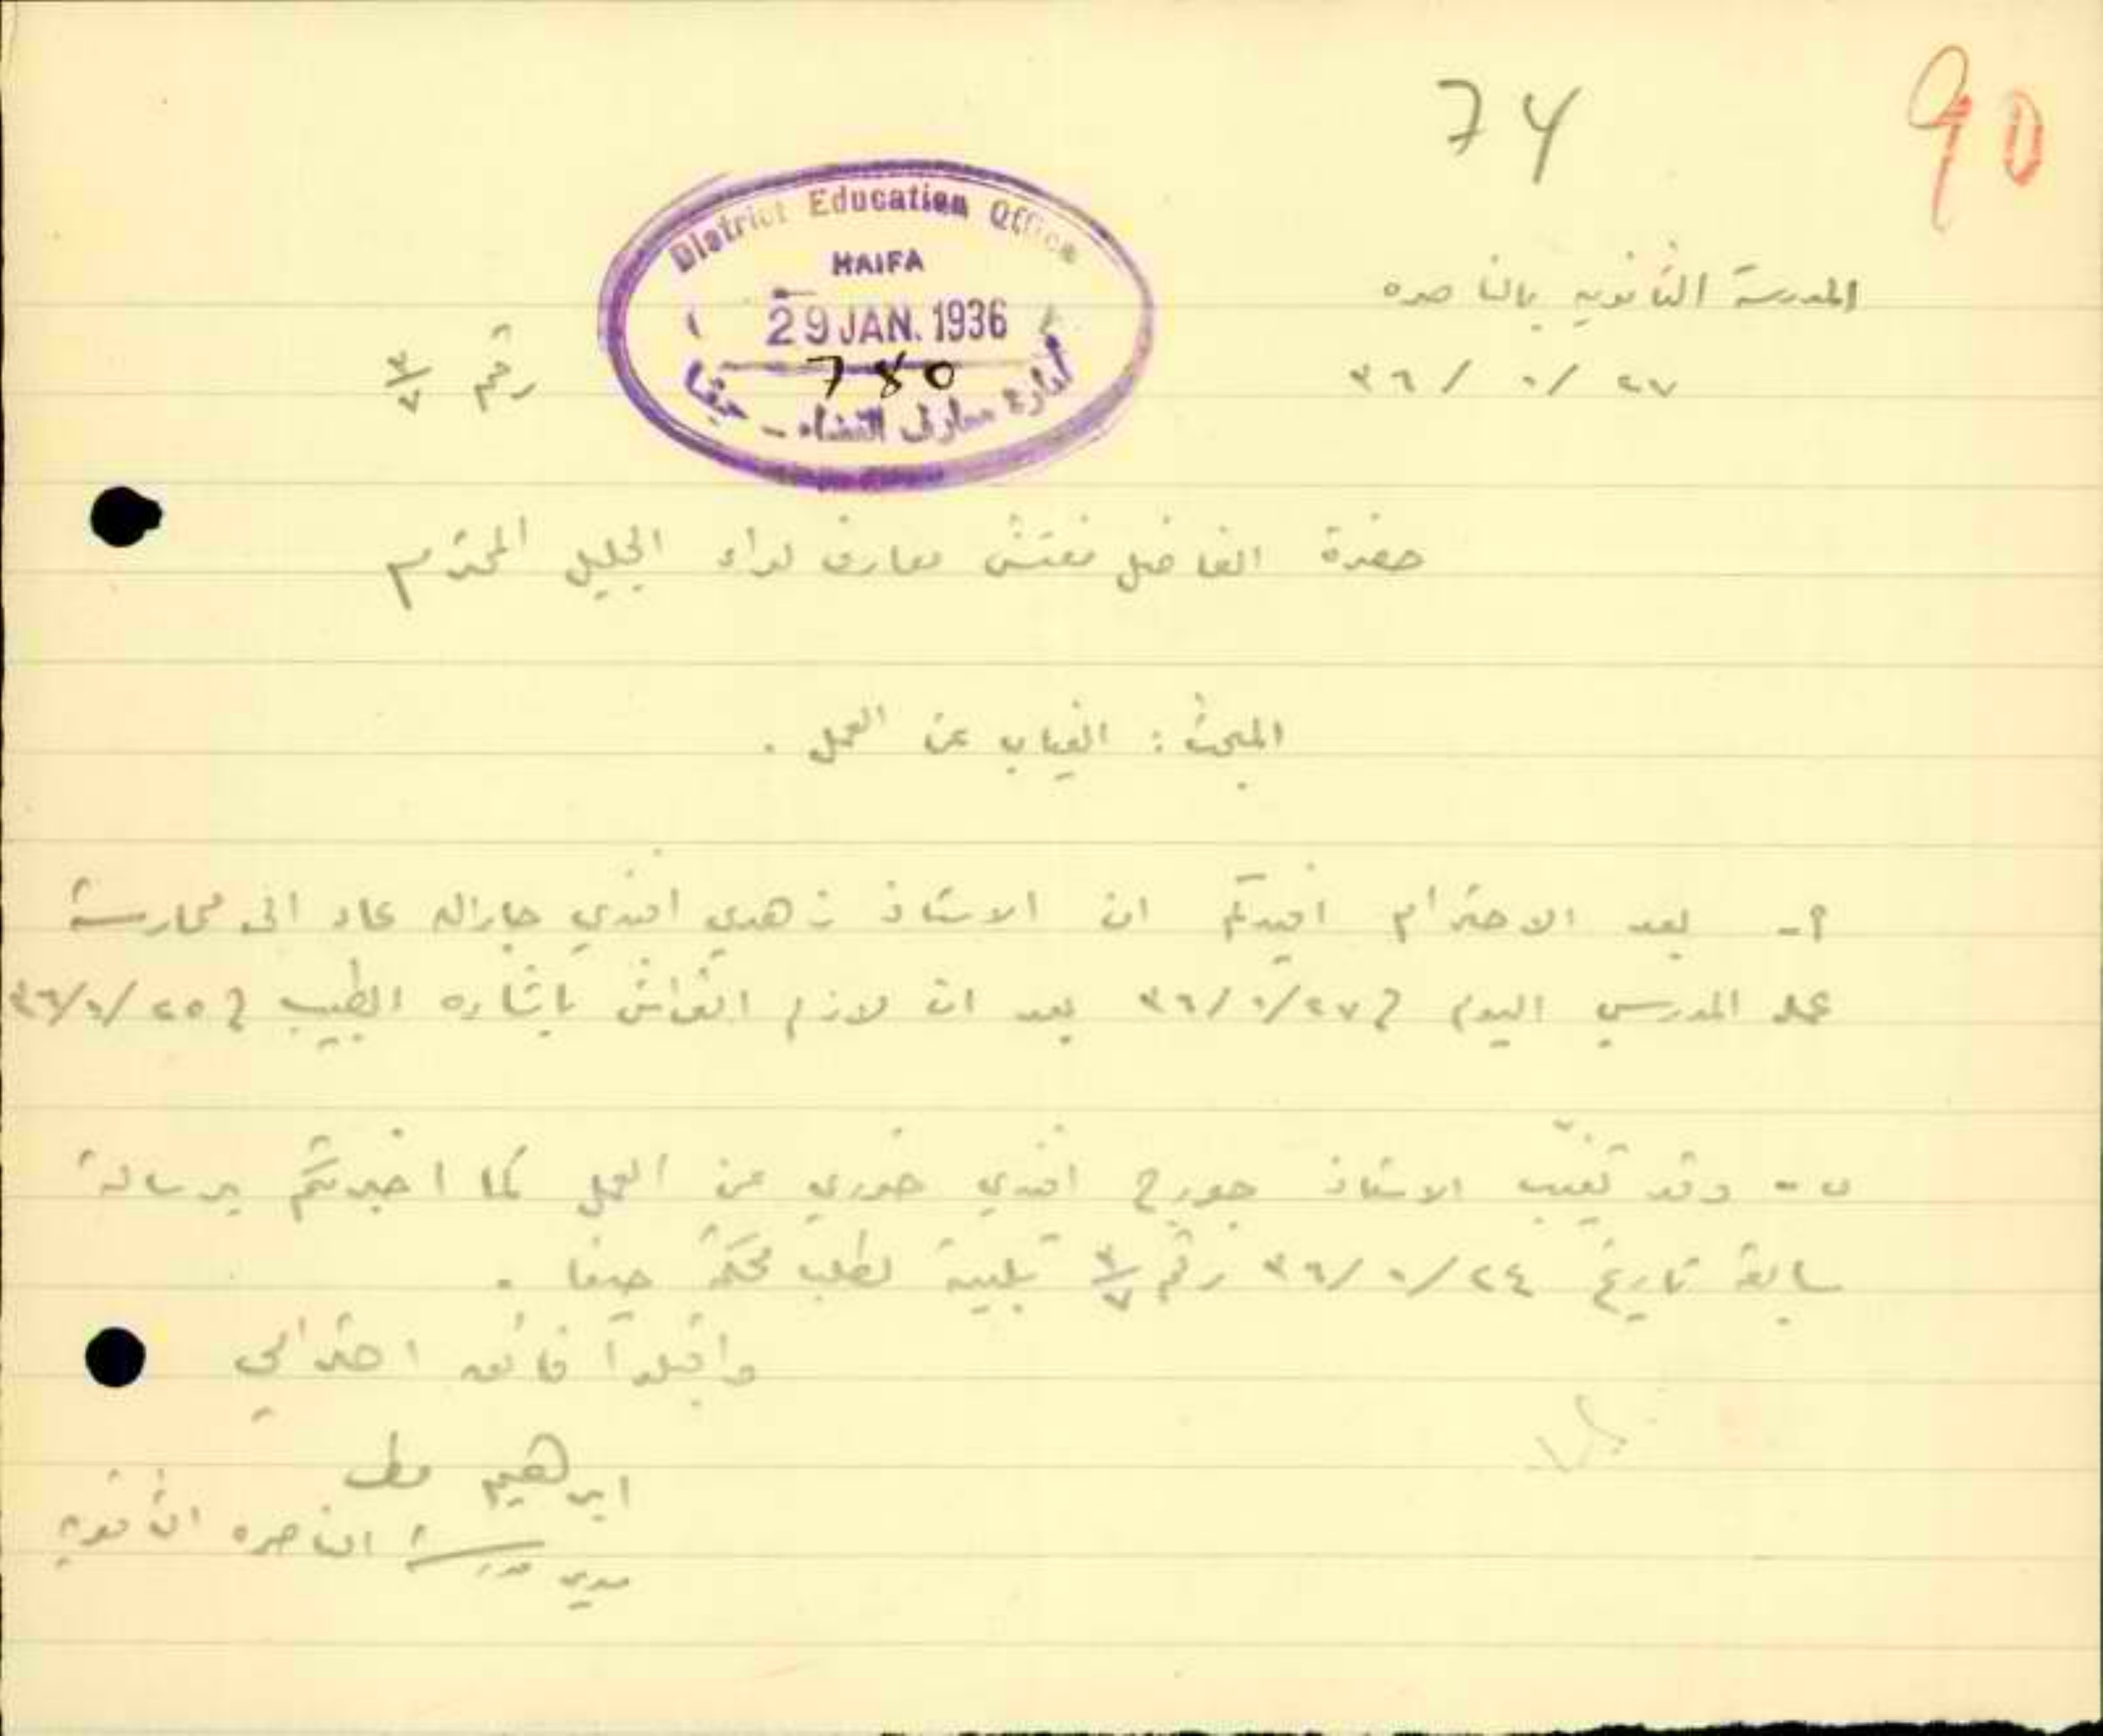 74
90
District Education Office
HAIFA
29 JAN. 1936
780
ادارة معارف القضاء - حيفا
المدرسة الثانويه بالناصره
٢٧ / ١ / ٣٦
رقم ٣/٧
حضرة الفاضل مفتش معارف لواء الجليل المحترم
المبحث : الغياب عن العمل .
أ- بعد الاحترام افيدكم ان الاستاذ زهدي افندي جارالله عاد الى ممارسة
عمله المدرسي اليوم في ٢٧/١/٣٦ بعد ان لازم الفراش باشاره الطبيب في ٢٥/١/٣٦
ب - وقد تغيّب الاستاذ جورج افندي خوري عن العمل كما اخبرتكم برسالة
سابقة تاريخ ٢٤/١/٣٦ رقم ٣/٧ تلبية لطلب محكمة حيفا .
واقبلوا فائق احترامي
ابرهيم مطر
مدير مدرسة الناصره الثانويه